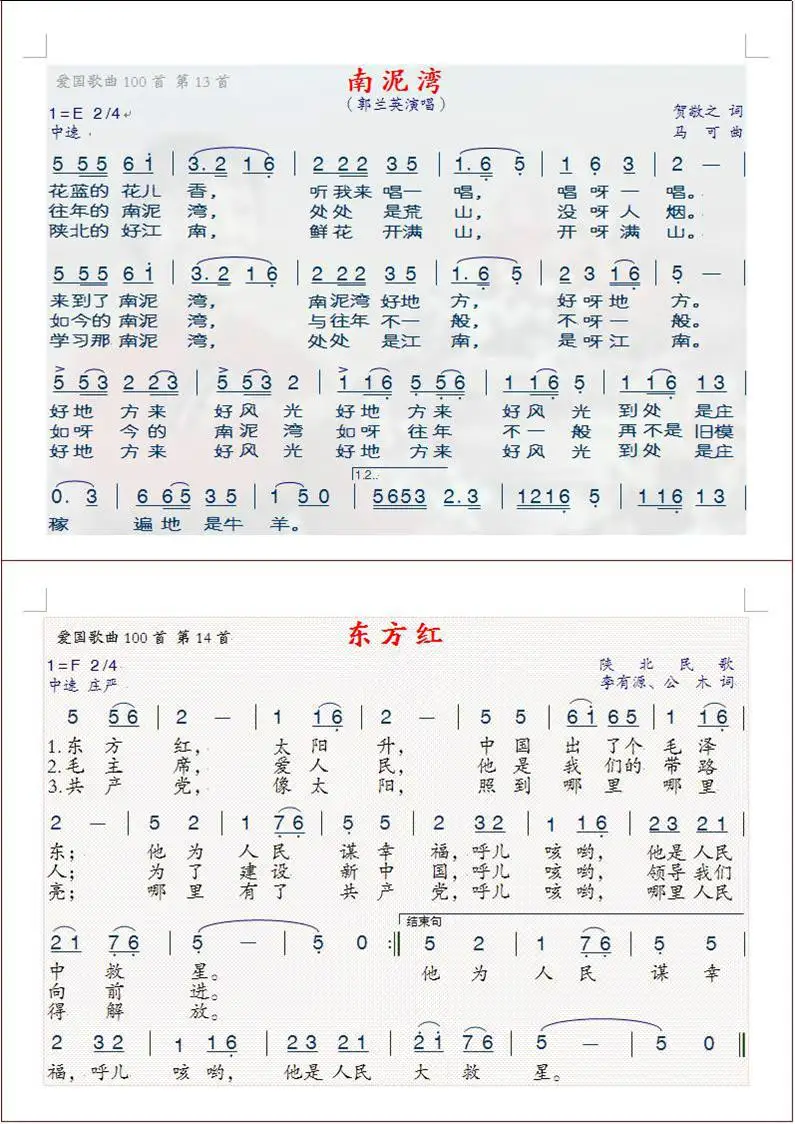 爱国歌曲 100 首 第 13 首
南泥湾
（郭兰英演唱）
1=E 2/4
贺敬之 词
中速
马 可 曲
5 55 6 i | 3. 2 1 6 | 2 22 3 5 | 1. 6 5 | 1 6 3 | 2 — |
花蓝的 花儿 香， 听我来 唱一 唱， 唱 呀 一 唱。
往年的 南泥 湾， 处处 是荒 山， 没 呀 人 烟。
陕北的 好江 南， 鲜花 开满 山， 开 呀 满 山。
5 55 6 i | 3. 2 1 6 | 2 22 3 5 | 1. 6 5 | 2 3 16 | 5 — |
来到了 南泥 湾， 南泥湾 好地 方， 好 呀 地 方。
如今的 南泥 湾， 与往年 不一 般， 不 呀 一 般。
学习那 南泥 湾， 处处 是江 南， 是 呀 江 南。
5 53 2 23 | 5 53 2 | 1 16 5 56 | 1 16 5 | 1 16 1 3 |
好地 方来 好风 光 好地 方来 好风 光 到处 是庄
如呀 今的 南泥 湾 如呀 往年 不一 般 再不是 旧模
好地 方来 好风 光 好地 方来 好风 光 到处 是庄
1.2..
0. 3 | 6 65 3 5 | 1 5 0 | 5653 2. 3 | 1216 5 | 1 16 1 3 |
稼 遍地 是牛 羊。
爱国歌曲 100 首 第 14 首
东方红
1=F 2/4
陕 北 民 歌
中速 庄严
李有源、公 木 词
5 56 | 2 — | 1 16 | 2 — | 5 5 | 6i 65 | 1 16 |
1.东 方 红， 太 阳 升， 中 国 出 了个 毛 泽
2.毛 主 席， 爱 人 民， 他 是 我 们的 带 路
3.共 产 党， 像 太 阳， 照 到 哪 里 哪 里
2 — | 5 2 | 1 76 | 5 5 | 2 32 | 1 16 | 23 21 |
东； 他 为 人 民 谋 幸 福，呼儿 咳 哟， 他是 人民
人； 为 了 建 设 新 中 国，呼儿 咳 哟， 领导 我们
亮； 哪 里 有 了 共 产 党，呼儿 咳 哟， 哪里 人民
结束句
21 76 | 5 — | 5 0 :‖ 5 2 | 1 76 | 5 5 |
中 救 星。 他 为 人 民 谋 幸
向 前 进。
得 解 放。
2 32 | 1 16 | 23 21 | 21 76 | 5 — | 5 0 ‖
福，呼儿 咳 哟， 他是 人民 大 救 星。